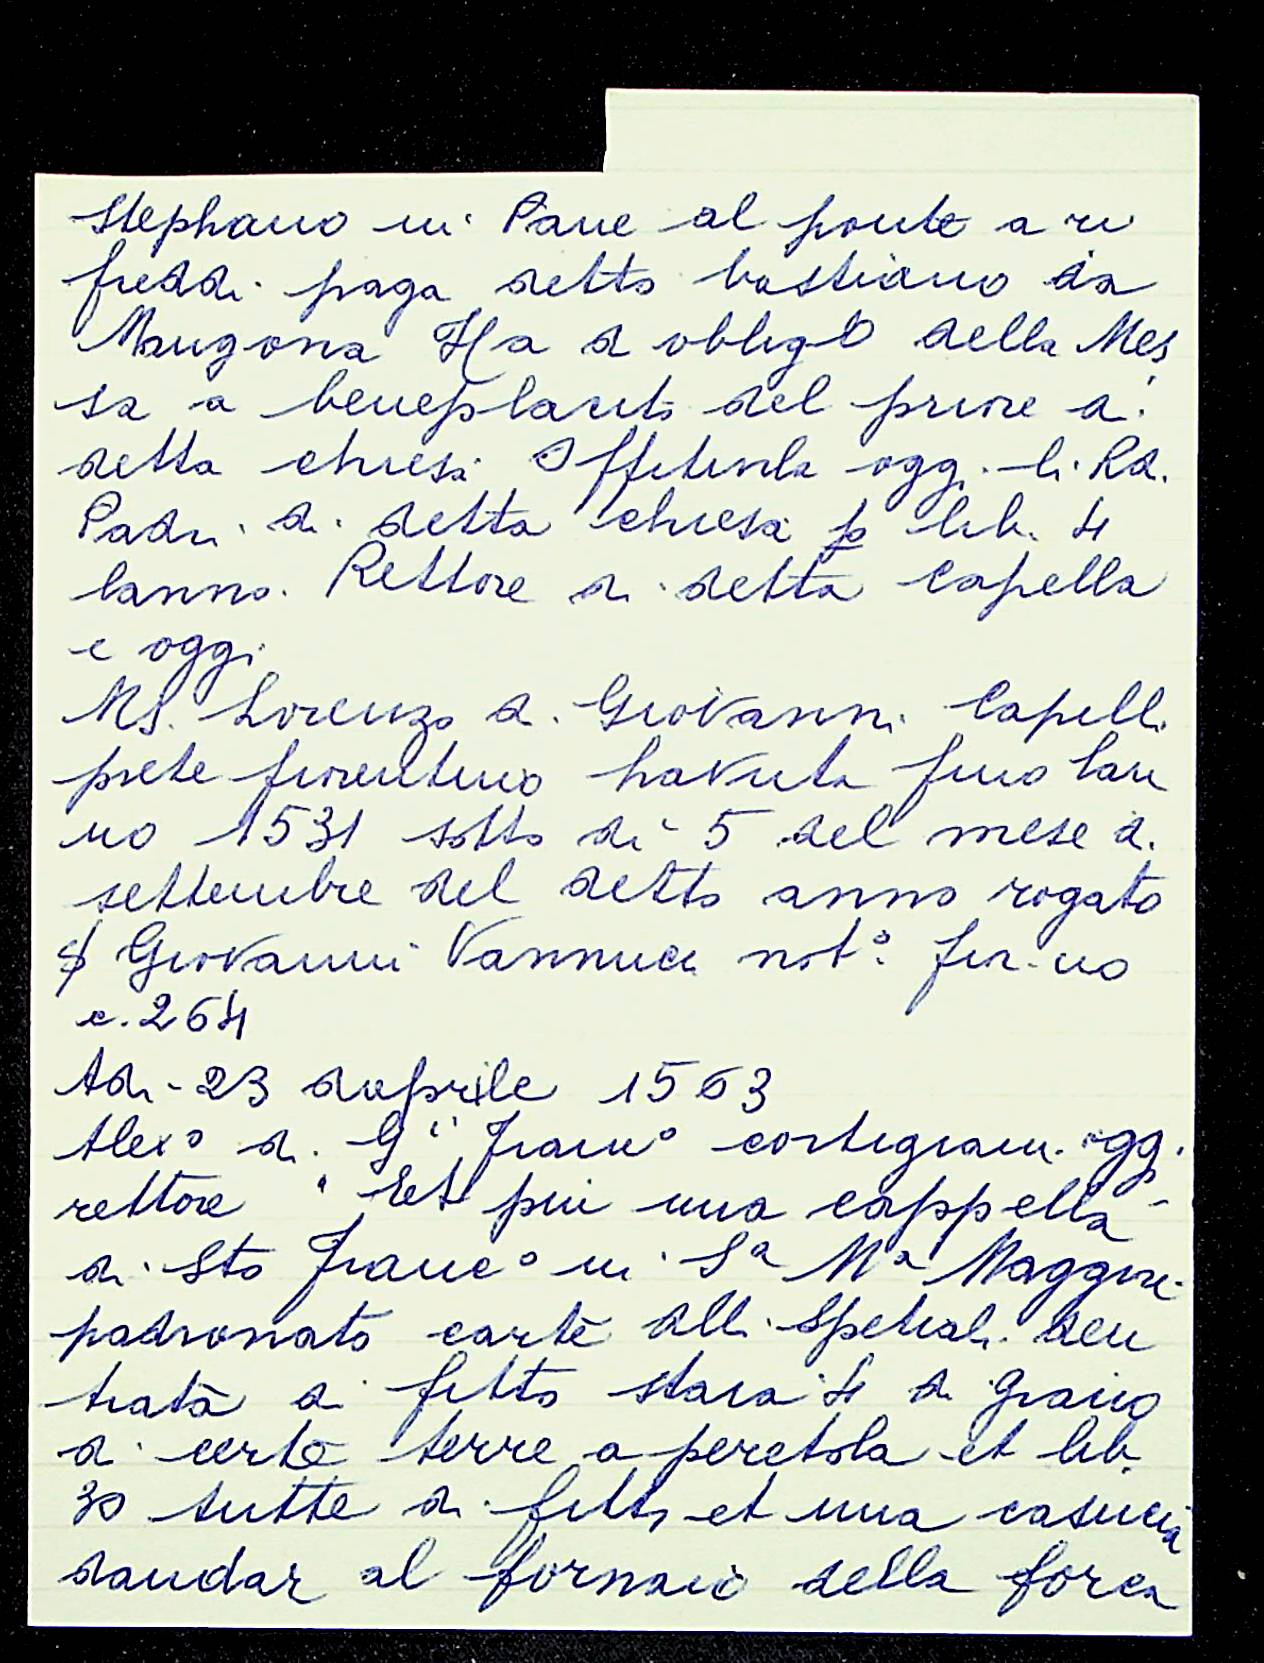 Stephano in Pane al ponte a ri
fredi paga detto bastiano da
Mangona Ha d obligo della Mes
sa a beneplacito del priore di
detta chiesa Offitiala oggi li Rd.
Padri di detta chiesa p lib. 4
lanno. Rettore di detta Capella
e oggi
Ms. Lorenzo di Giovanni Capelli
prete fiorentino havuta fino lan
no 1531 sotto di 5 del mese di
settembre del detto anno rogato
Giovanni Vannucci not° fior-no
c. 264
Adi - 23 daprile 1563
Alexo di Franco oggi
rettore " Et piu una cappella
di Sto Franc° in Sa Ma Maggiore
padronato carte delli Spetiali den
trata di fitto staia 4 di grano
di certe terre a peretola et lib.
30 tutte di fitto et una casuccia
dandar al fornaio della forca